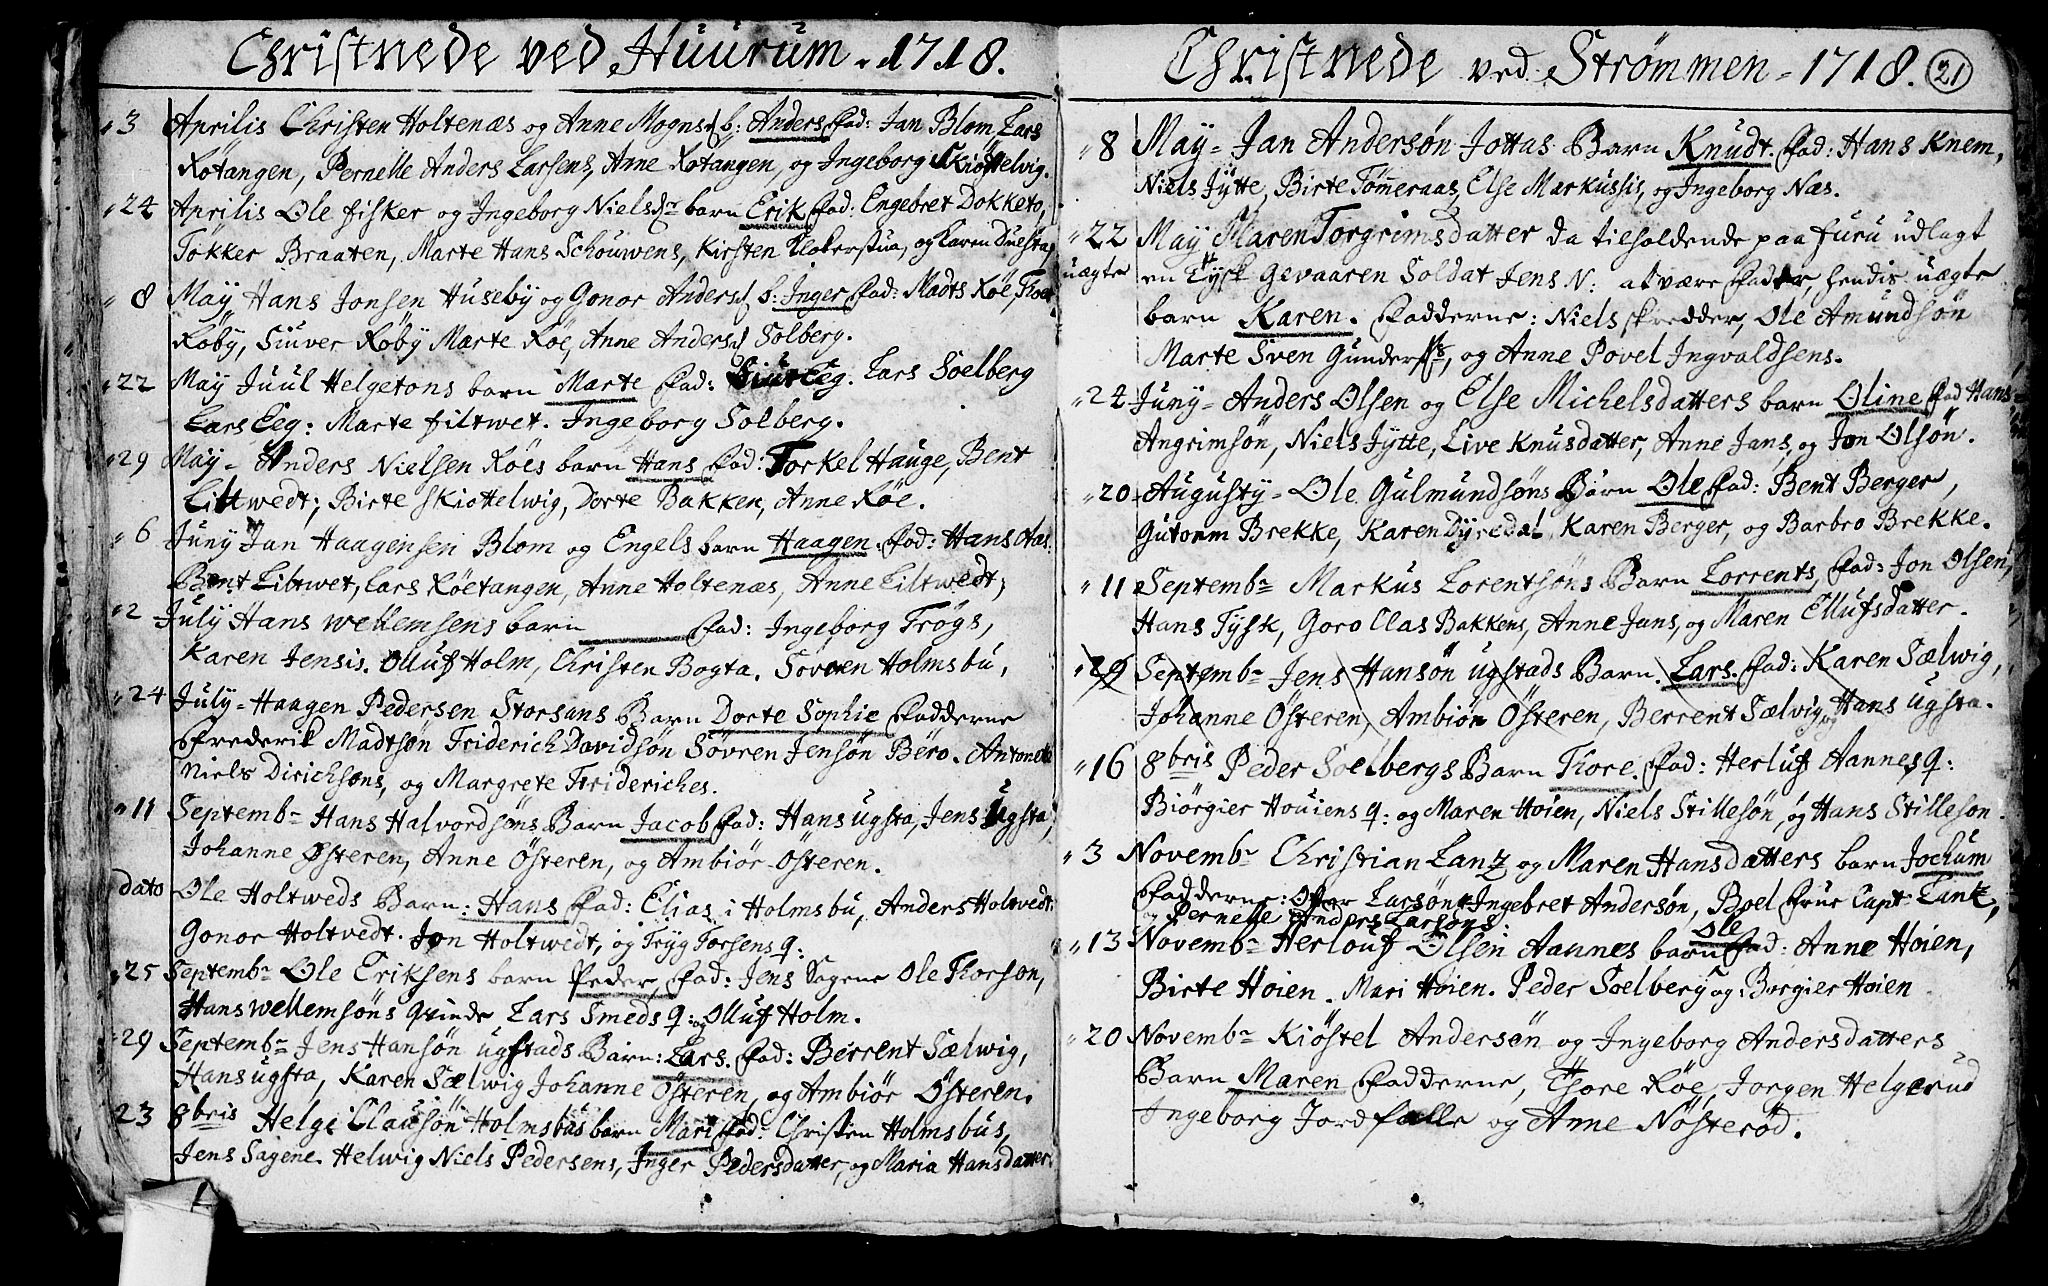 Christnede ved Huurum. 1718.
3 Aprilis Christen Holtenæs og Anne Mognsd b: Anders Fad: Jan Blom, Lars
Rötangen, Pernelle Anders Larsens, Anne Rotangen, og Ingeborg Skiöttelvig.
24 Aprilis Ole fisker og Ingeborg Nielsdr barn Erik Fad: Engebret Dokketo,
Tökker Braaten, Marte Hans Schouwens, Kirsten Klokerstua, og Karen Duesta,
8 May Hans Jonsen Huseby og Gonor Andersd b: Inger Fad: Madts Röe, Thor
Röby, Siuver Röby Marte Röe, Anne Andersd Solberg.
22 May Juul Helgetons barn Marte Fad: Siur Eeg. Lars Soelberg
Lars Eeg: Marte filtwet. Ingeborg Solberg.
29 May - Anders Nielsen Röes barn Hans Fad: Torkel Hauge, Bent
Liltwedt; Birte skiottelwig, Dorte Bakken, Anne Röe.
6 Juny Jan Haagensen Blom og Engels barn Haagen. Fad: Hans Aas.
Bent Liltwet, Lars Röetangen, Anne Holtenæs, Anne Liltwedt,
2 July Hans Wellemsens barn Fad: Ingeborg Trögs,
Karen Jensis. Olluf Holm, Christen Bogta. Sovren Holmsbu,
24 July - Haagen Pedersen Storsans Barn Dorte Sophie Fadderne
Frederik Madtsön Friderich Davidsön Sövren Jensön Bero. Antonette
Niels Dirichsons, og Margrete Frideriches.
11 Septembr Hans Halvordsöns Barn Jacob Fad: Hans ugsta, Jens Ugsta,
Johanne Østeren, Anne Österen, og Ambiör Osteren.
dato Ole Holtweds Barn: Hans Fad: Elias i Holmsbu, Anders Holtvedt.
Gonor Holtvedt. Jon Holtwedt, og Tryg Torsens q:
25 Septembr Ole Eriksens barn Peder Fad: Jens Sagene Ole Thorson,
Hans Wellemsöns Qvinde Lars Smeds q: og Olluf Holm.
29 Septembr Jens Hansön ugstads Barn: Lars. Fad: Berrent Sælwig,
Hans ugsta, Karen Sælwig Johanne Österen, og Ambiör Østeren.
23 8bris Helge Clausön Holmsbus barn Mari Fad: Christen Holmsbus,
Jens Sagene. Helwig Niels Pedersens, Inger Pedersdatter, og Maria Hansdatter.
Christnede ved Strømmen - 1718. 21
8 May - Jan Andersøn Jottas Barn Knudt. Fad: Hans Knem,
Niels Jytte, Birte Tömeraas, Else Markussis, og Ingeborg Næs.
22 May Maren Torgrimsdatter da tilholdende paa furu udlagt
uægte en Tysk Gevaaren Soldat Jens N: at være Fader, hendis uægte
barn Karen. Fadderne: Niels skredder, Ole Amundsön
Marte Sven Gunders, og Anne Povel Ingvaldsens.
24 Juny - Anders Olsen og Else Michelsdatters barn Oline Fad Hans
Angrimsön, Niels Jytte, Live Knusdatter, Anne Jans, og Jon Olsön.
20 Augusty - Ole Gulmundsöns Barn Ole Fad: Bent Berger,
Gutorm Brekke, Karen Dyredal, Karen Berger, og Barbro Brekke.
11 Septembr Markus Lorentsöns Barn Lorrents, Fad: Jon Olsen,
Hans Tysk, Goro Clas Bakkens, Anne Jans, og Maren Ellufsdatter.
29 Septembr Jens Hansön ugstads Barn. Lars. Fad: Karen Sælwig,
Johanne Österen, Ambiör Österen, Berrent Sælvig, og Hans ugsta.
16 8bris Peder Soelbergs Barn Thore. Fad: Herluf Aannes q:
Biörgier Houiens q: og Maren Hoien, Niels Stillesön, og Hans Stilleson.
3 Novembr Christian Lantz og Maren Hansdatters barn Jochum
Fadderne: Oter Larsön Ingebret Andersön, Boel Frue Capt: Lantz,
og Pernelle Anders Larsöns.
13 Novembr Herlouf Olsen Aannes barn Ole Fad: Anne Hoien,
Birte Hoien. Mari Höien. Peder Soelberg og Borgier Höien
20 Novembr Kiöstel Andersön og Ingeborg Andersdatters
Barn Maren Fadderne, Thore Röe, Jorgen Helgerud
Ingeborg Jordfalls og Anne Nösteröd.